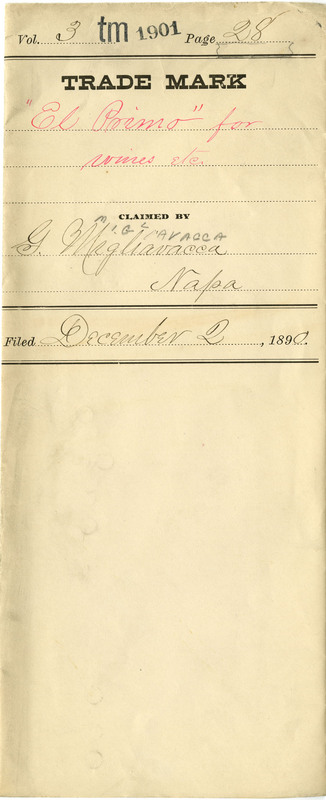 Vol. 3 tm 1901 Page 28
TRADE MARK
"El Primo" for
wines etc.
CLAIMED BY
MIGLIAVACCA
G. Migliavacca
Napa
Filed December 2, 1890.